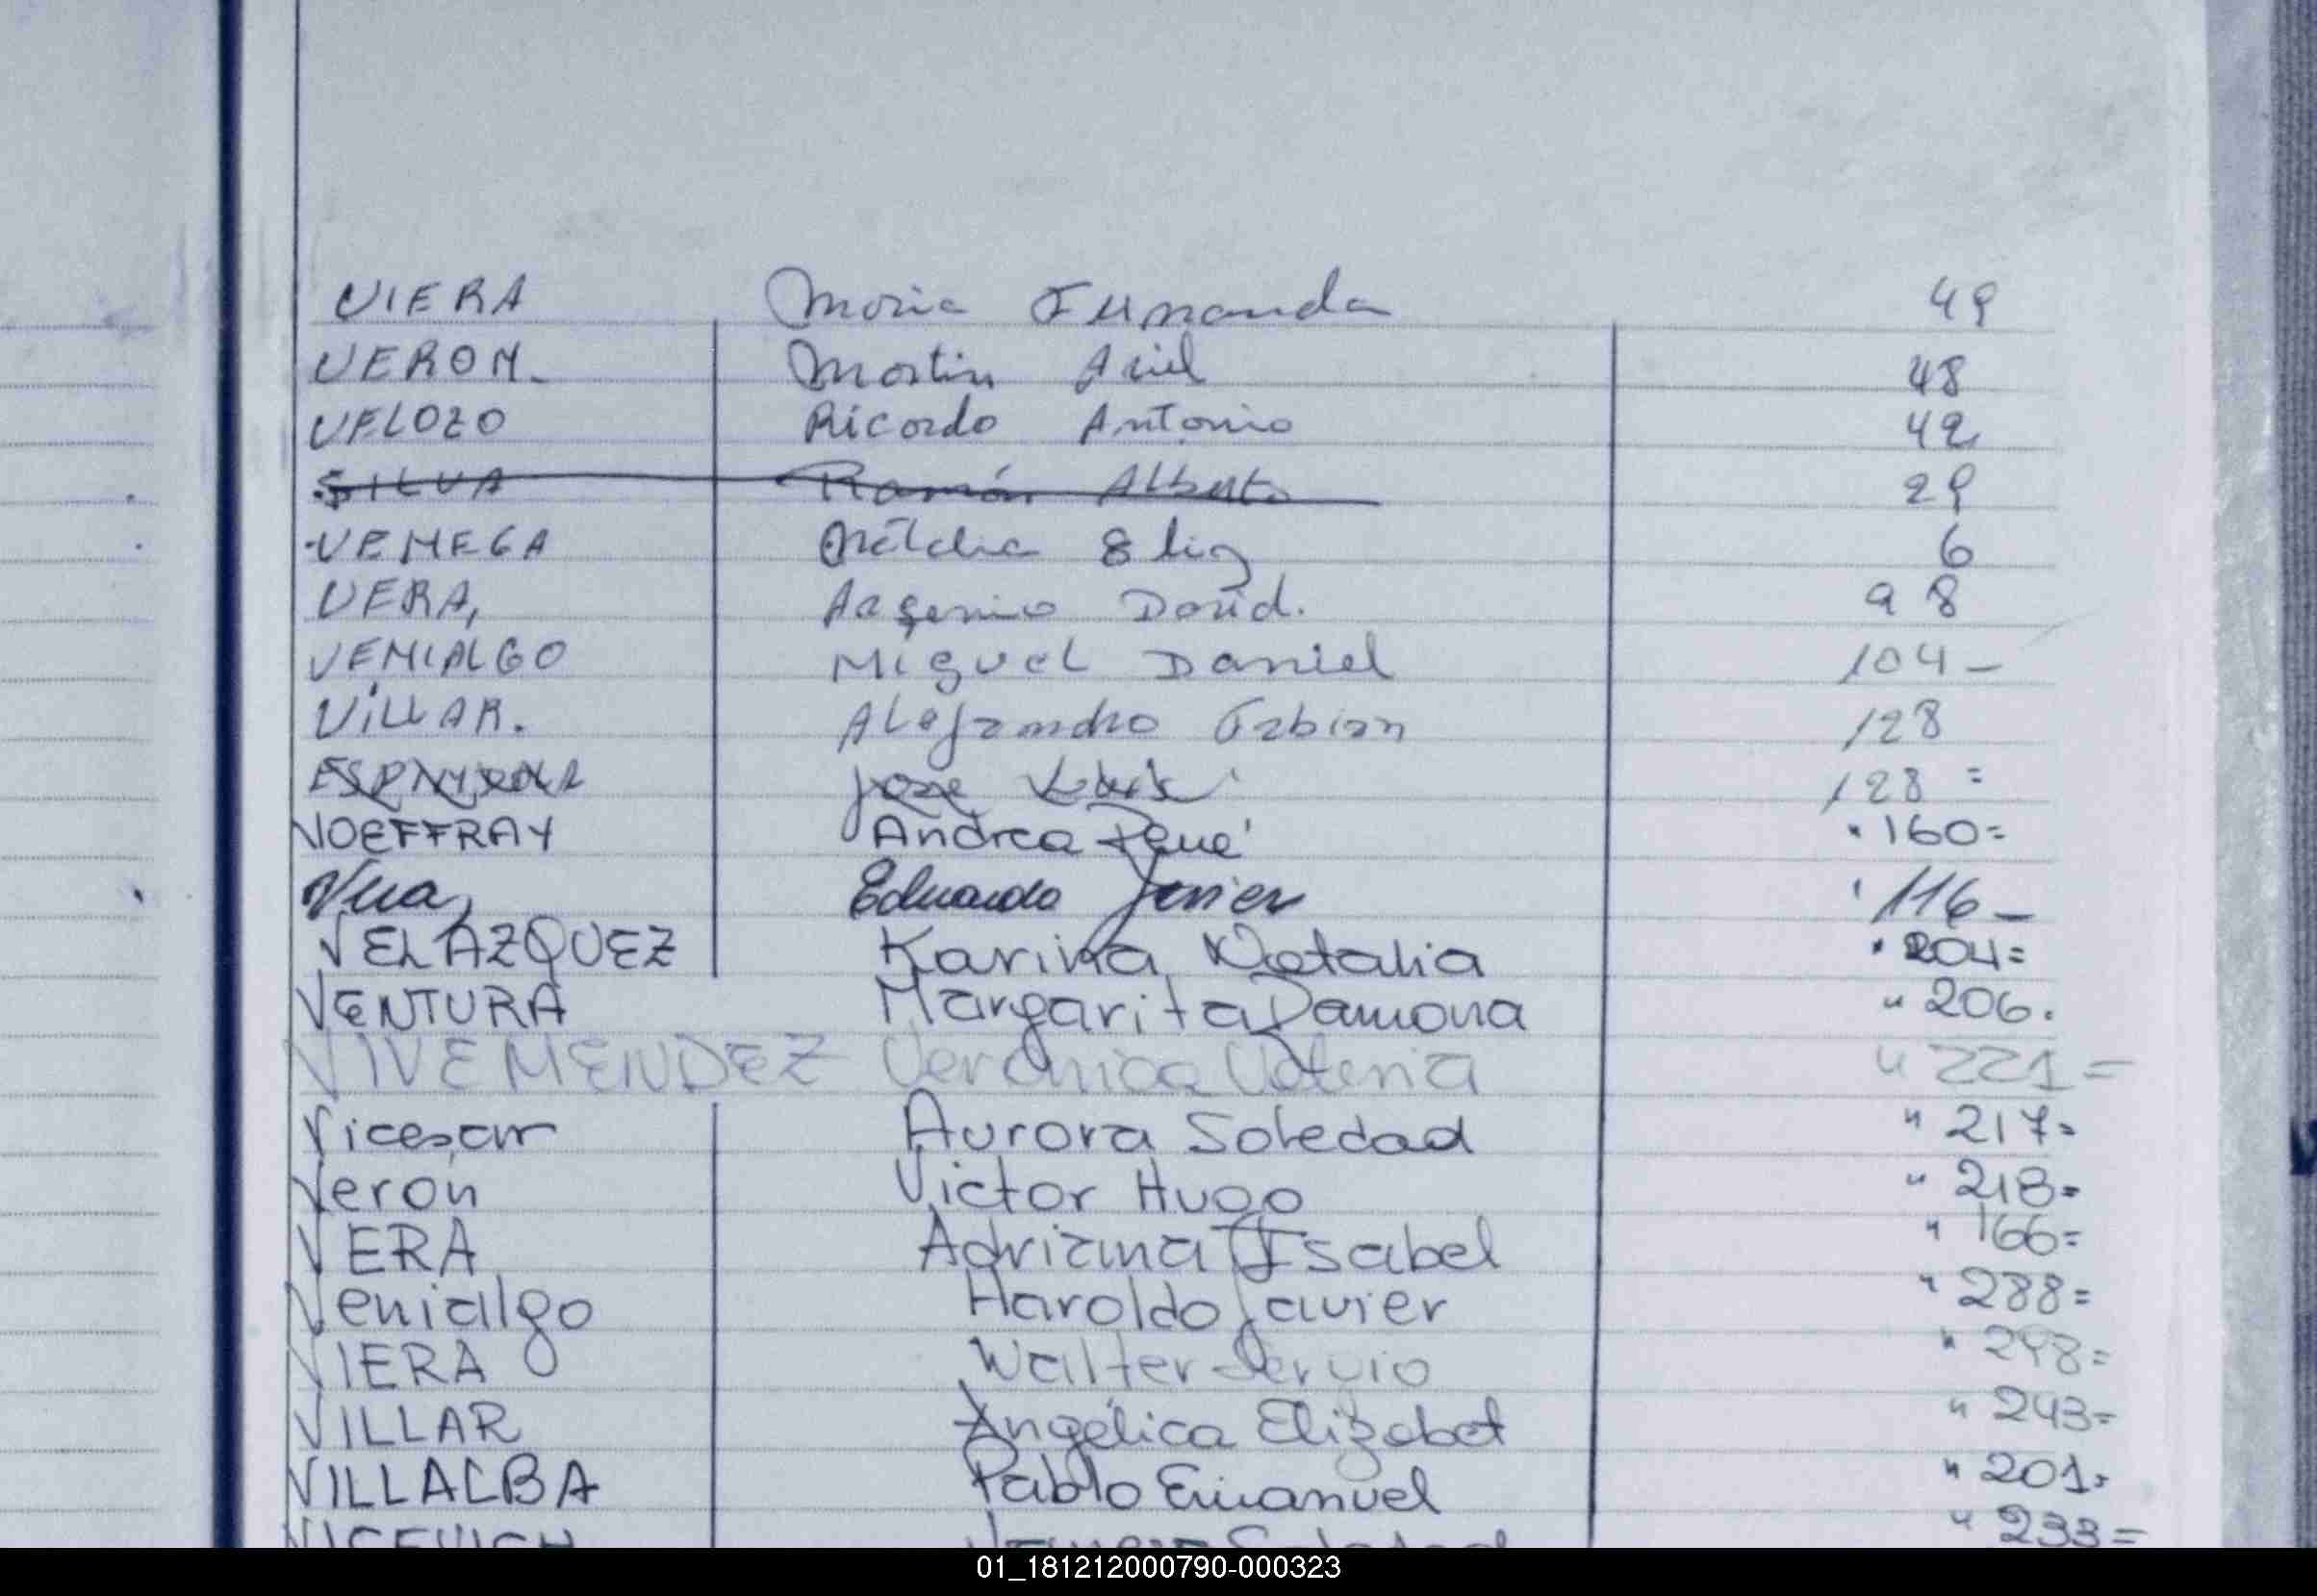 VIERA Maria Fernanda 49
VERON. Martin Ariel 48
VELOZO Ricardo Antonio 42
SILVA Ramón Alberto 29
VENEGA 6
VERA, Argenio David. 98
VENIALGO Miguel Daniel 104-
VILLAR. Alejandro Fabian 128
José Luis 128 =
VOEFFRAY Andrea René 160=
Vera, Eduardo Javier 116-
VELAZQUEZ Karina Natalia 204=
VENTURA Margarita Ramona " 206.
VIVE MENDEZ Veronica Valeria " 221=
Vicesar Aurora Soledad " 217=
Verón Victor Hugo " 218=
VERA Adriana Isabel " 166=
Venialgo Haroldo Javier " 288=
VIERA Walter Sergio " 298=
VILLAR Angélica Elizabet " 243=
VILLALBA Pablo Emanuel " 201=
Soledad " 233=
01_181212000790-000323